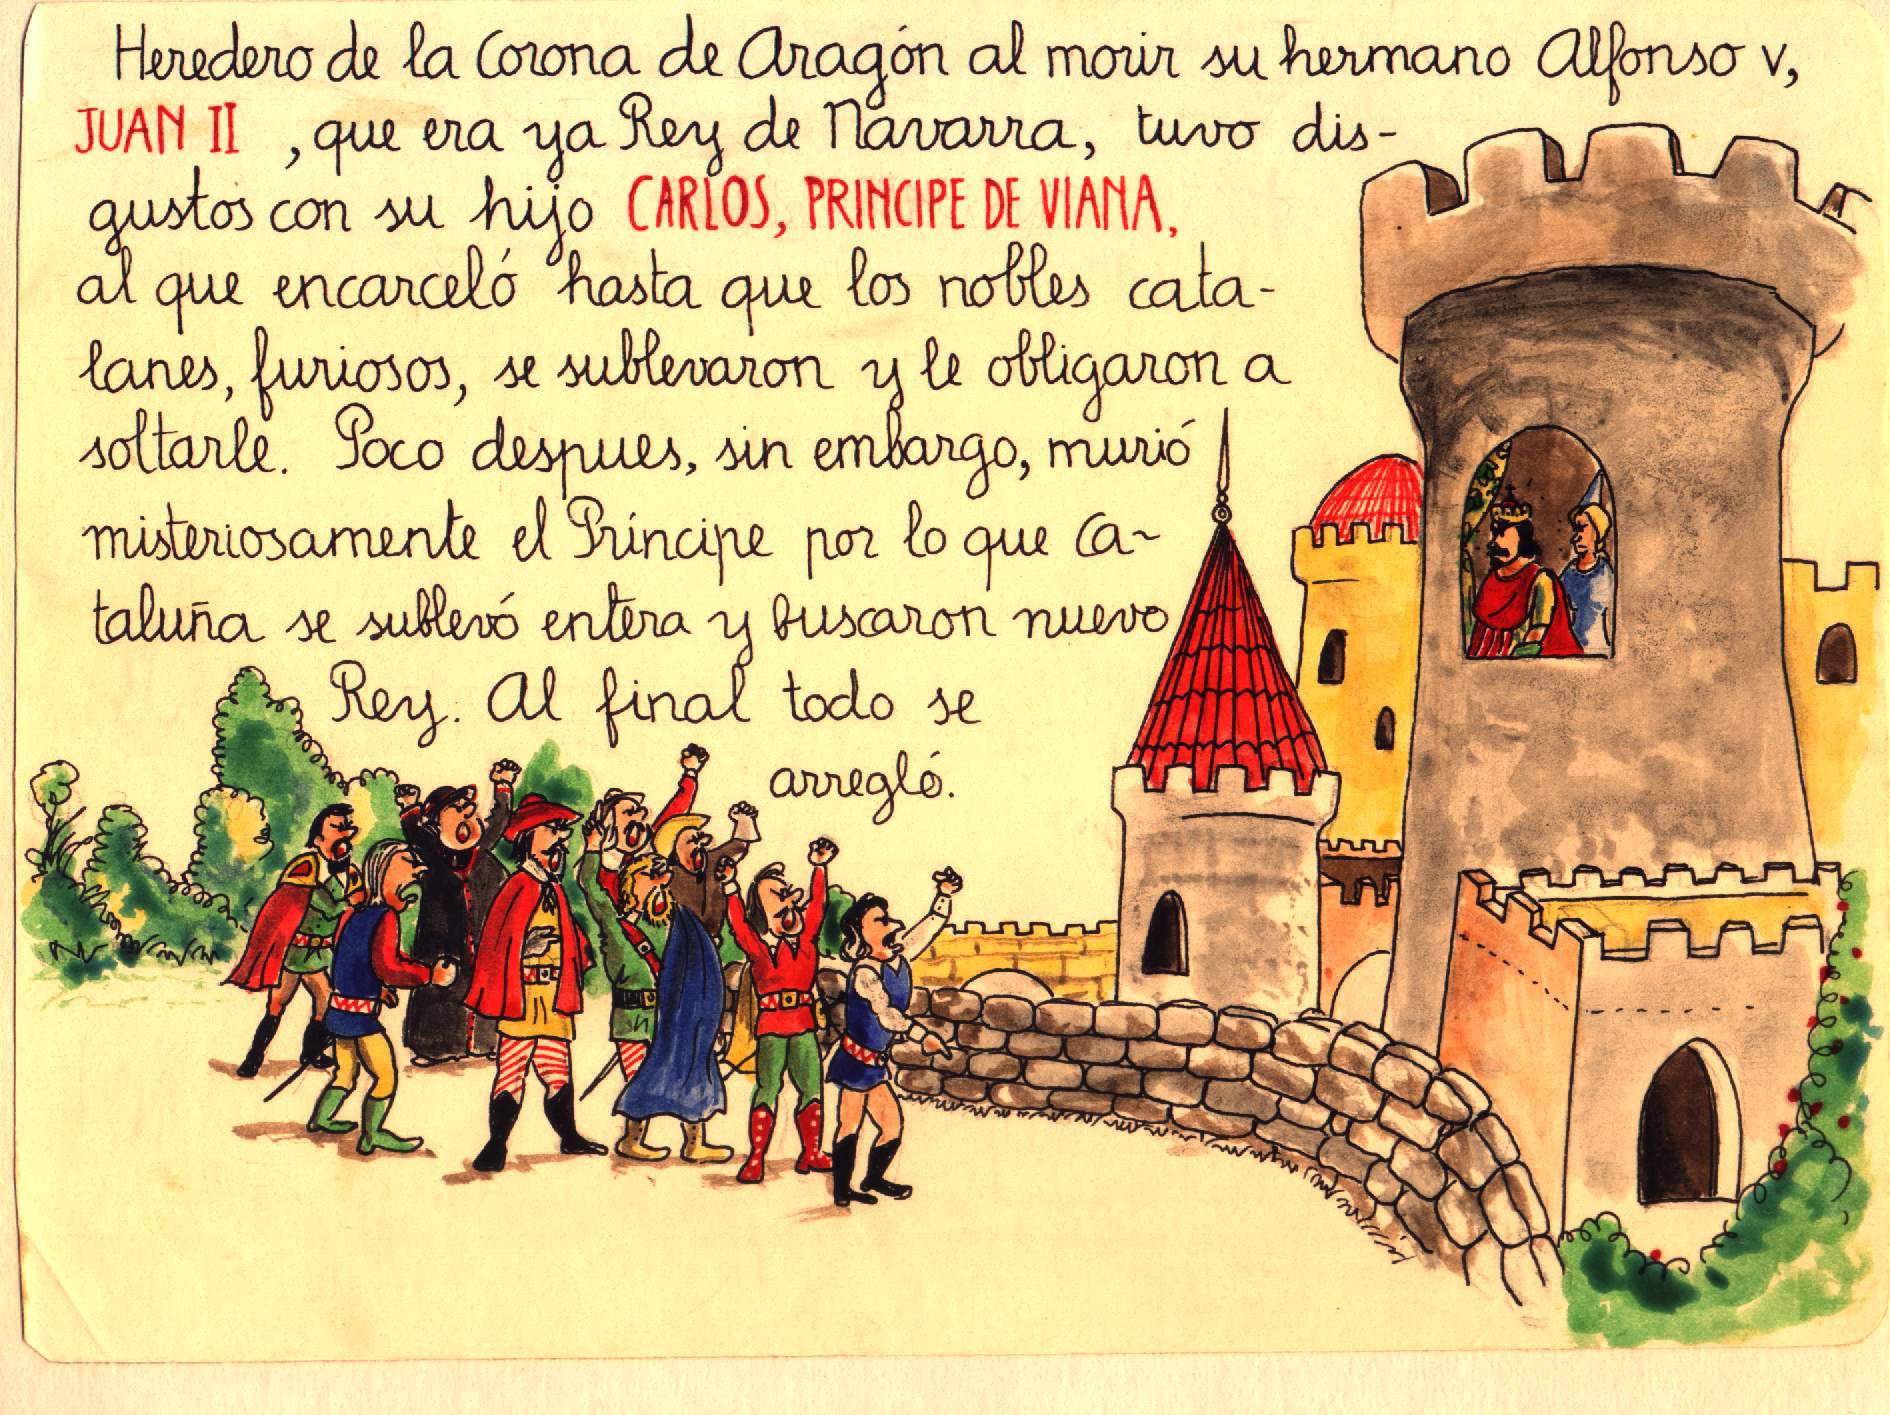 Heredero de la Corona de Aragón al morir su hermano Alfonso V,
JUAN II , que era ya Rey de Navarra, tuvo dis-
gustos con su hijo CARLOS, PRINCIPE DE VIANA,
al que encarceló hasta que los nobles cata-
lanes, furiosos, se sublevaron y le obligaron a
soltarle. Poco despues, sin embargo, murió
misteriosamente el Príncipe por lo que Ca-
taluña se sublevó entera y buscaron nuevo
Rey. Al final todo se
arregló.